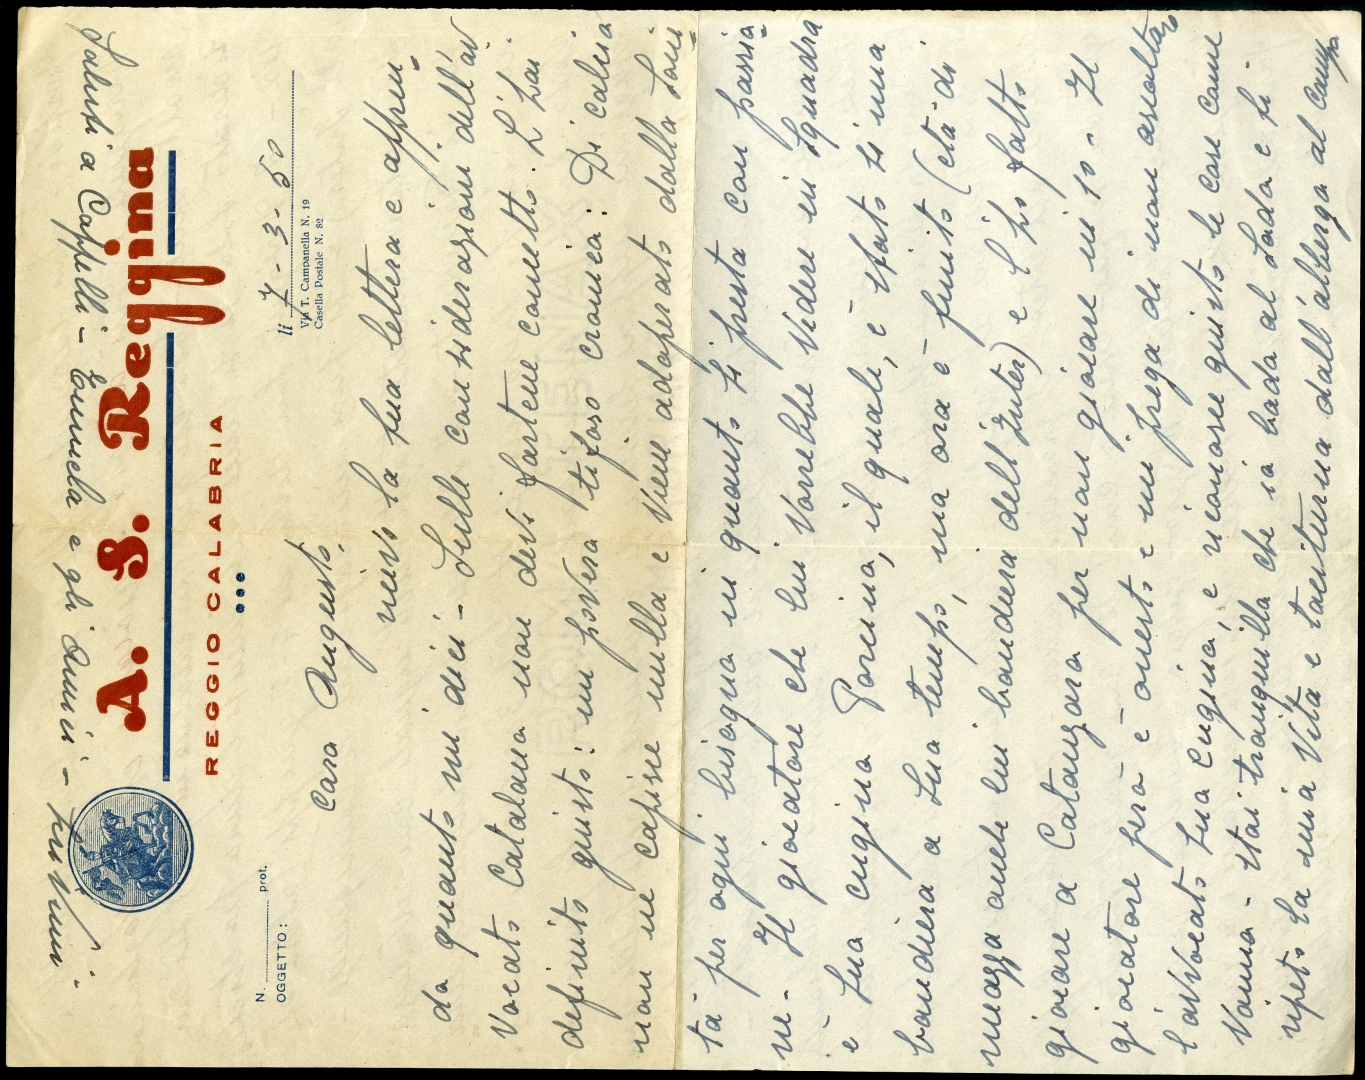 Saluti a Cappelli - Emuela e gli amici -
A. S. Reggina
REGGIO CALABRIA
N. prot.
OGGETTO:
li 7-3-50
Via T. Campanella N. 19
Casella Postale N. 82
Caro Augusto,
ricevo la tua lettera e appren=
do quanto mi dici - Sulle considerazioni dell'av
vocato Catalano non devi fartene concetto. L'hai
definito giusto: un povero tifoso cronico: Di calcio
non ne capisce nulla e viene adoperato dalla Soci=
tà per ogni bisogna in quanto si presta con passio=
ne. Il giocatore che lui vorrebbe vedere in squadra
è suo cugino Pormina, il quale, è stato sì una
bandiera a suo tempo, ma ora è finito (età di
mezzo anche lui bandiera dell'Inter) e l'ho fatto
giocare a Catanzaro per non giocare in 10. Il
giocatore però è onesto e mi prega di non ascoltare
l'avvocato suo cugino, e riconosce giusto le cose come
vanno - Stai tranquillo che io bado al sodo e ti
ripeto la mia vita è taciturna dall'albergo al campo